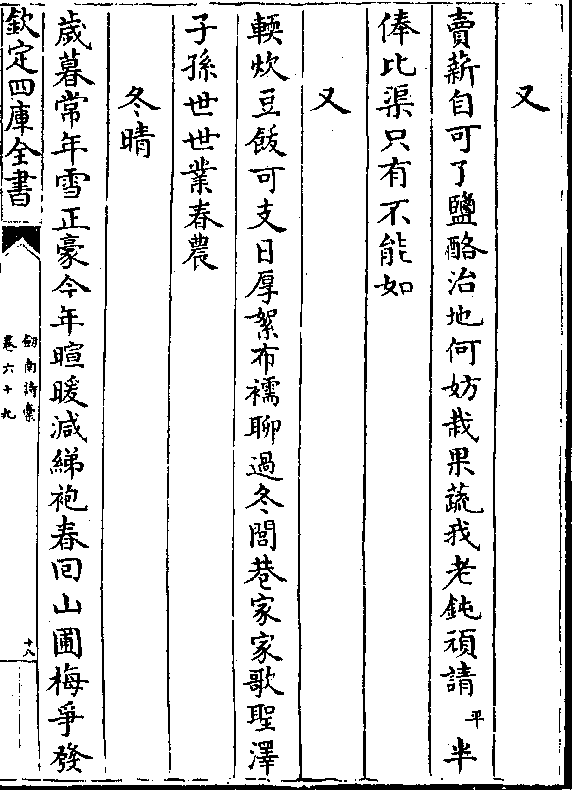 又
賣薪自可了鹽酪治地何妨栽果蔬我老鈍頑請平半
俸比渠只有不能如
又
輭炊豆飯可支日厚絮布襦聊過冬閭巷家家歌聖澤
子孫世世業春農
冬晴
歲暮常年雪正豪今年暄暖減綈袍春回山圃梅爭發
欽定四庫全書
劔南詩稾
卷六十九
十八